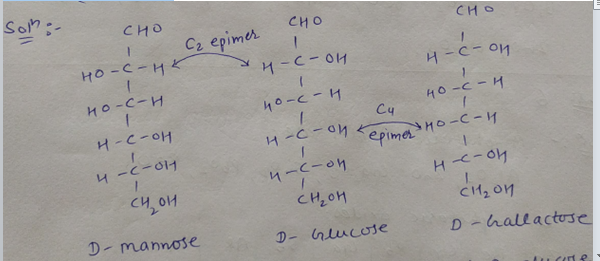 Solⁿ :-
CHO
HO - C - H
HO - C - H
H - C - OH
H - C - OH
CH₂OH
D - mannose
C₂ epimer
CHO
H - C - OH
HO - C - H
H - C - OH
H - C - OH
CH₂OH
D - Glucose
C₄
epimer
CHO
H - C - OH
HO - C - H
HO - C - H
H - C - OH
CH₂OH
D - Gallactose